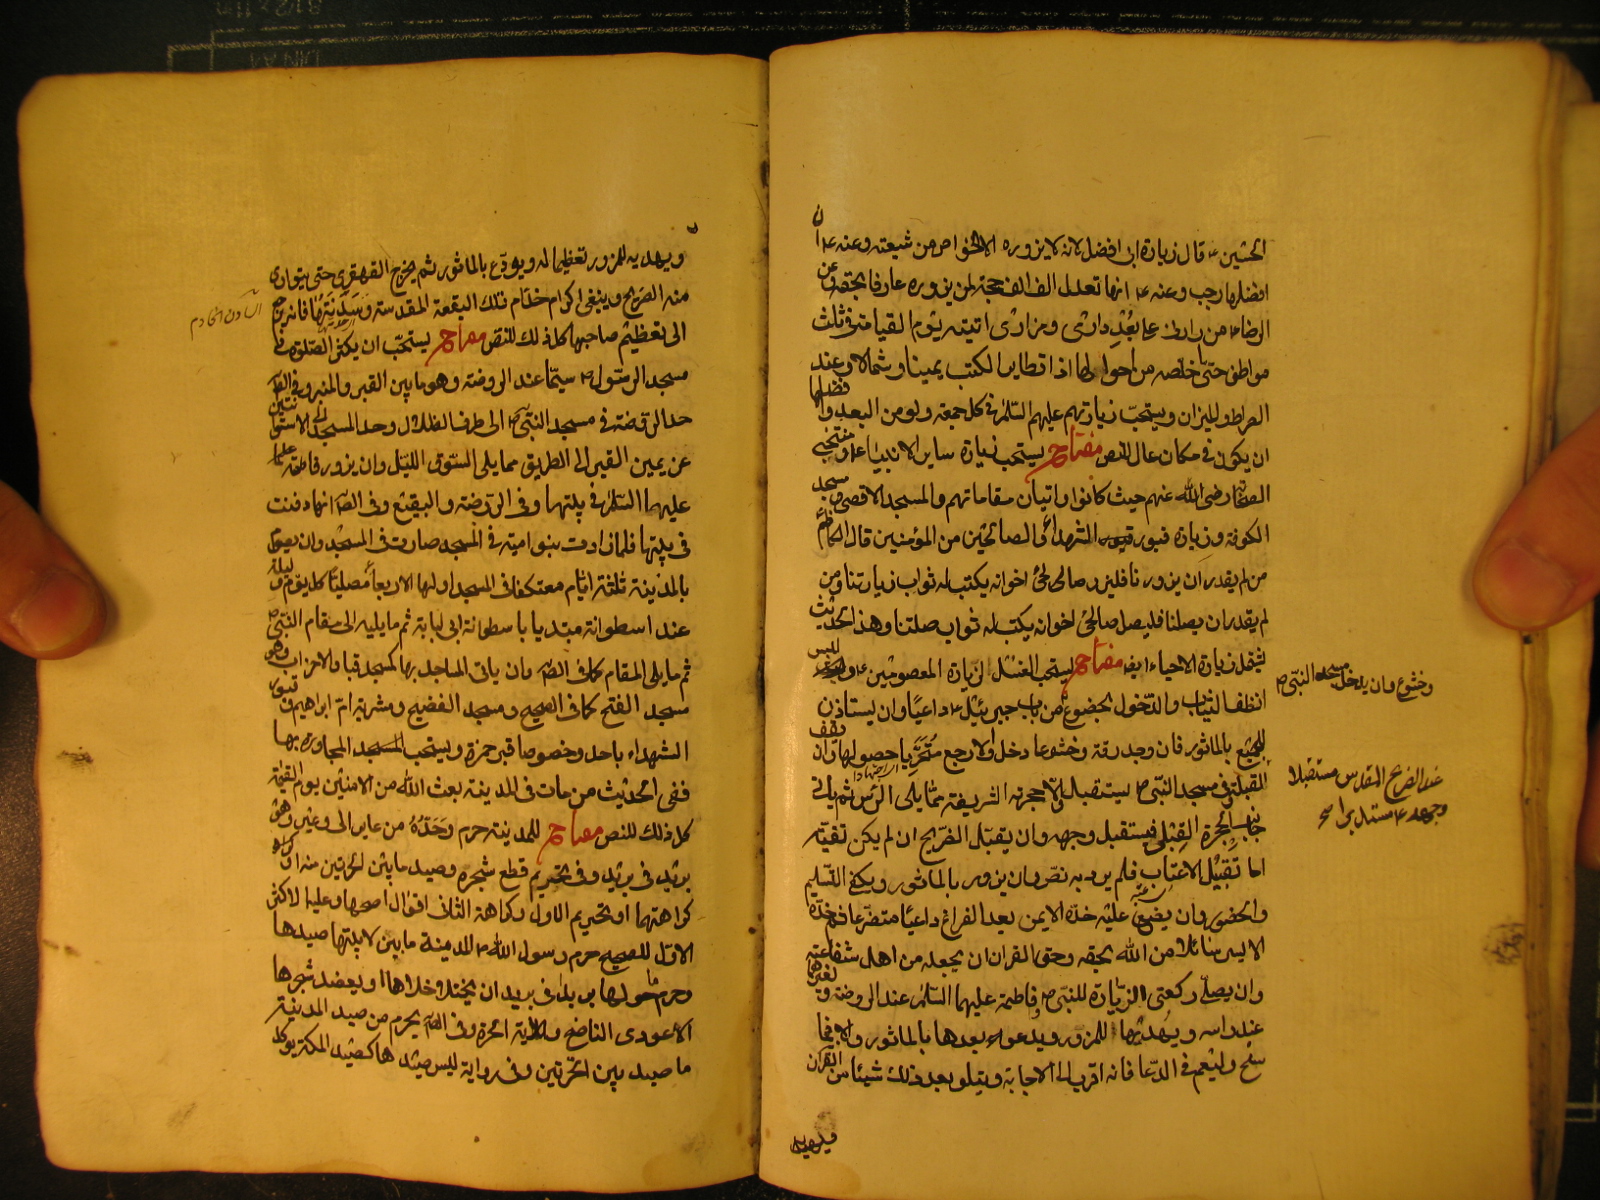 الحسين ع قال زيارة ابى افضل لانه لا يزوره الا الخواص من شيعته وعنه ع ان
افضلها رجب وعنه ع انها تعدل الف الف حجة لمن يزوره عارفا بحقه وعن
الرضا ع من زارنى على بُعْدِ دارى ومزارى اتيته يوم القيامة فى ثلث
مواطن حتى اخلصه من احوالها اذا تطاير الكتب يمينا وشمالا وعند
الصراط والميزان ويستحب زيارتهم عليهم السلام فى كل جمعة ولو من البعد وافضلها
ان يكون فى مكان عال للنص مفتاح يستحب زيارة ساير الانبياء ع ومنتجبى
الصحابة رضى الله عنهم حيث كانوا واتيان مقاماتهم والمسجد الاقصى ومسجد
الكوفة وزيارة قبور الشهداء والصالحين من المؤمنين قال الكاظم ع
من لم يقدر ان يزورنا فليزر صالحى اخوانه يكتب له ثواب زيارتنا ومن
لم يقدر ان يصلنا فليصل صالحى اخوانه يكتب له ثواب صلتنا وهذا الحديث
يشمل زيارة الاحياء ايضا مفتاح يستحب الغسل لزيارة المعصومين ع ولبس
انظف الثياب والدخول بخضوع من باب جبرئيل ع داعيا وان يستاذن
للجميع بالماثور فان وجد رقة وخشوعا دخل والا رجع مُتَحَرِّيا حصولها وان يقف
للقبلة فى مسجد النبى ص يستقبل الحجرة الشريفة مما يلى الراس ثم ياتى
جانب الحجرة القبلى فيستقبل وجهه وان يقبّل الضريح ان لم يكن تقية
اما تقبيل الاعتاب فلم يرد به نص وان يزور بالماثور ويكفى التسليم
والحضور وان يضع عليه خده الايمن بعد الفراغ داعيا متضرعا ثم خدّه
الايسر سائلا من الله بحقه وحق القران ان يجعله من اهل شفاعته
وان يصلى ركعتى الزيارة للنبى ص وفاطمة عليهما السلام عند الروضة ولغيرهما
عند راسه ويهديها للمزور ويدعو بعدها بالماثور والا فبما
سنح وليعم فى الدعا فانه اقرب الى الاجابة ويتلو بعد ذلك شيئا من القران
ويهديه
وخشوع وان يدخل مسجد النبى ص
عند الضريح المقدس مستقبلا
وجهه ع مستدبرا صح
ويهديه للمزور تعظيما له ويودّع بالماثور ثم يخرج القهقرى حتى يتوارى
منه الضريح وينبغى اكرام خدّام تلك البقعة المقدسة وسَدَنَتِهَا فانه يرجع
الى تعظيم صاحبها كل ذلك للنص مفتاح يستحبّ ان يكثر الصلوة فى
مسجد الرسول ص سيّما عند الروضة وهو ما بين القبر والمنبر وفى الصحيح
حد الروضة فى مسجد النبى ص الى طرف الظلال وحد المسجد الى الاسطوانتين
عن يمين القبر الى الطريق مما يلى السوق الليل وان يزور فاطمة
عليها السلام فى بيتها وفى الروضة والبقيع وفى الصحيح انها دفنت
فى بيتها فلما زادت بنو امية فى المسجد صارت فى المسجد وان يصوم
بالمدينة ثلثة ايّام معتكفا فى المسجد اولها الاربعاء مصليّا كل يوم وليلة
عند اسطوانة مبتديا باسطوانة ابى لبابة ثم ما يليه الى مقام النبى ص
ثم ما يلى المقام كما فى الصحيح وان ياتى المساجد بها كمسجد قبا والاحزاب وهو
مسجد الفتح كما فى الصحيح ومسجد الفضيح ومشربة ام ابراهيم وقبور
الشهداء باحد وخصوصا قبر حمزة ويستحب المجاورة بها
ففى الحديث من مات فى المدينة بعث الله من الامنين يوم القيمة
كل ذلك للنص مفتاح للمدينة حرم وحَدّهُ من عاير الى وعير وهو
بريد فى بريد وفى تحريم قطع شجره وصيد ما بين الحرتين منه او
كراهتهما او تحريم الاول وكراهة الثانى اقوال اصحها وعليه الاكثر
الاول للصحيح حرم رسول الله ص المدينة ما بين لابتيها صيدها
وحرم ما حولها بريدا فى بريد ان يختلى خلاها او يعضد شجرها
الا عودى الناضح وفى الصحيح يحرم من صيد المدينة
ما صيد بين الحرتين وفى رواية ليس صيدها كصيد المكة يوكل
السادن الخادم